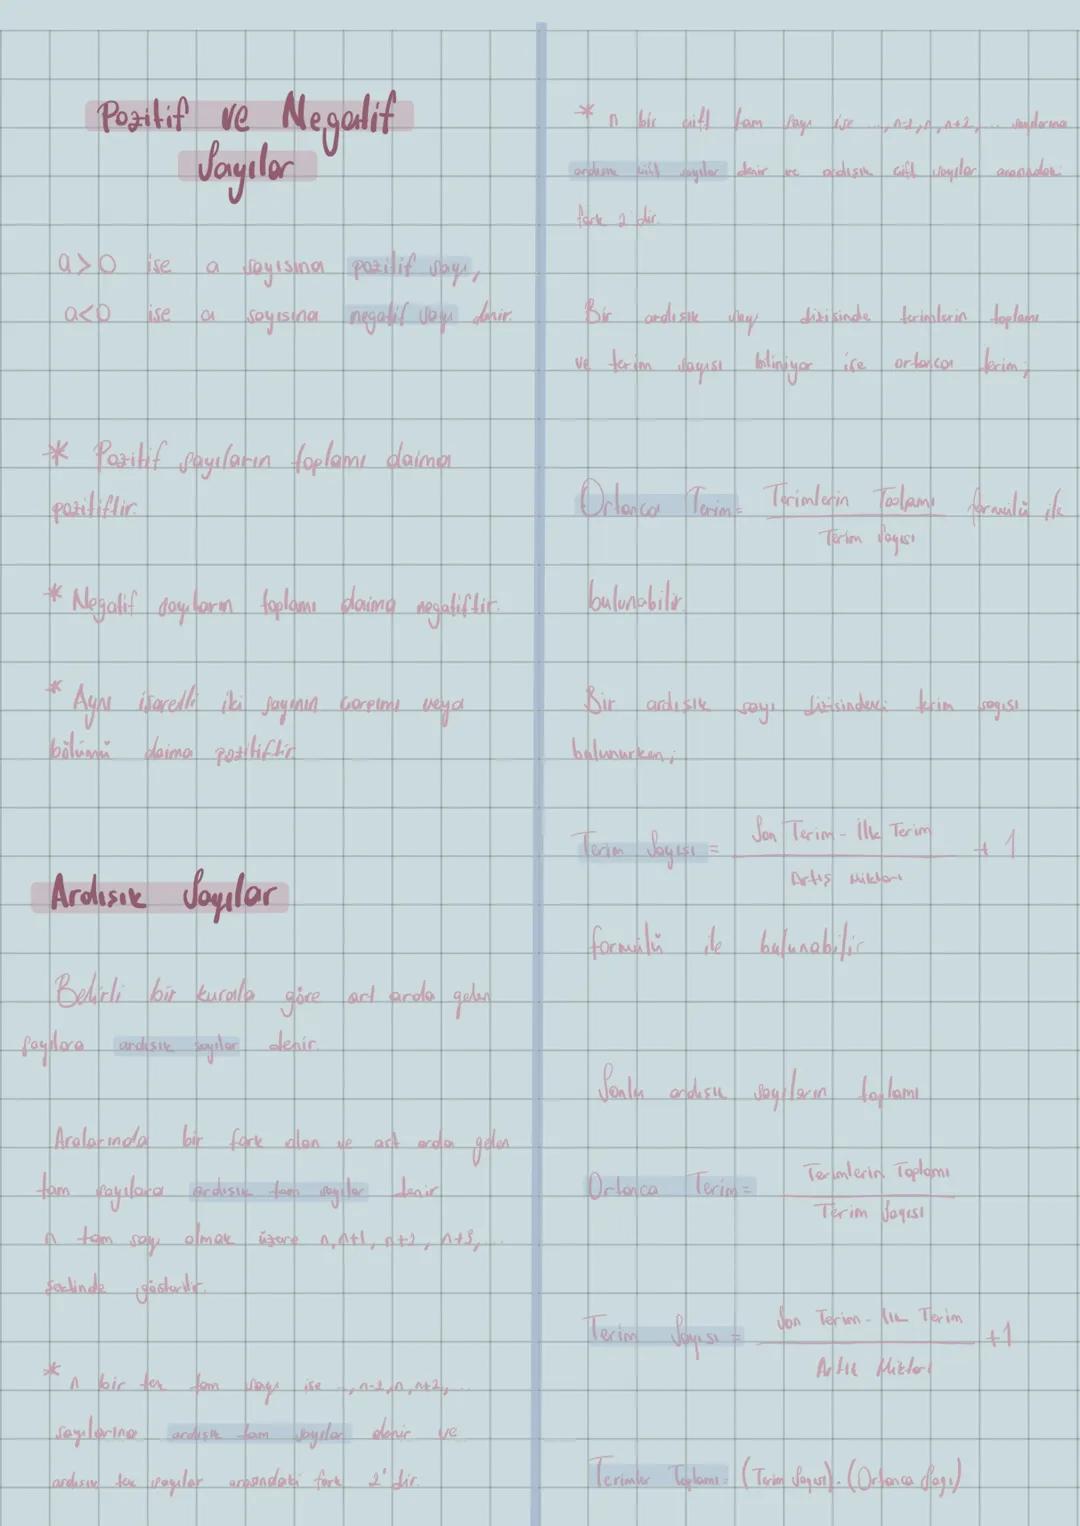 Pozitif ve Negatif
Sayılar
a>0 ise a sayısına pozitif sayı,
a<0 ise a sayısına negatif sayı denir.
* Pozitif sayıların toplamı daima
pozitiftir.
* Negatif sayıların toplamı daima negatiftir.
* Aynı işaretli iki sayının çarpımı veya
bölümü daima pozitiftir.
Ardışık Sayılar
Belirli bir kurala göre art arda gelen
sayılara ardışık sayılar denir.
Aralarında bir fark olan ve art arda gelen
tam sayılara ardışık tam sayılar denir
n tam sayı olmak üzere n, n+1, n+2, n+3, ...
şeklinde gösterilir.
* n bir tek tam sayı ise ..., n-2, n, n+2, ...
sayılarına ardışık tam sayılar denir ve
ardışık tek sayılar arasındaki fark 2' dir.
* n bir çift tam sayı ise ..., n-2, n, n+2, ... sayılarına
ardışık çift sayılar denir ve ardışık çift sayılar arasındaki
fark 2 dir.
Bir ardışık sayı dizisinde terimlerin toplamı
ve terim sayısı biliniyor ise ortanca terim;
Ortanca Terim = Terimlerin Toplamı formülü ile
Terim Sayısı
bulunabilir.
Bir ardışık sayı dizisindeki terim sayısı
bulunurken;
Terim Sayısı = Son Terim - İlk Terim + 1
Artış Miktarı
formülü ile bulunabilir
Sonlu ardışık sayıların toplamı
Ortanca Terim = Terimlerin Toplamı
Terim Sayısı
Terim Sayısı = Son Terim - İlk Terim +1
Artık Miktarı
Terimler Toplamı = (Terim Sayısı) . (Ortanca Sayı)